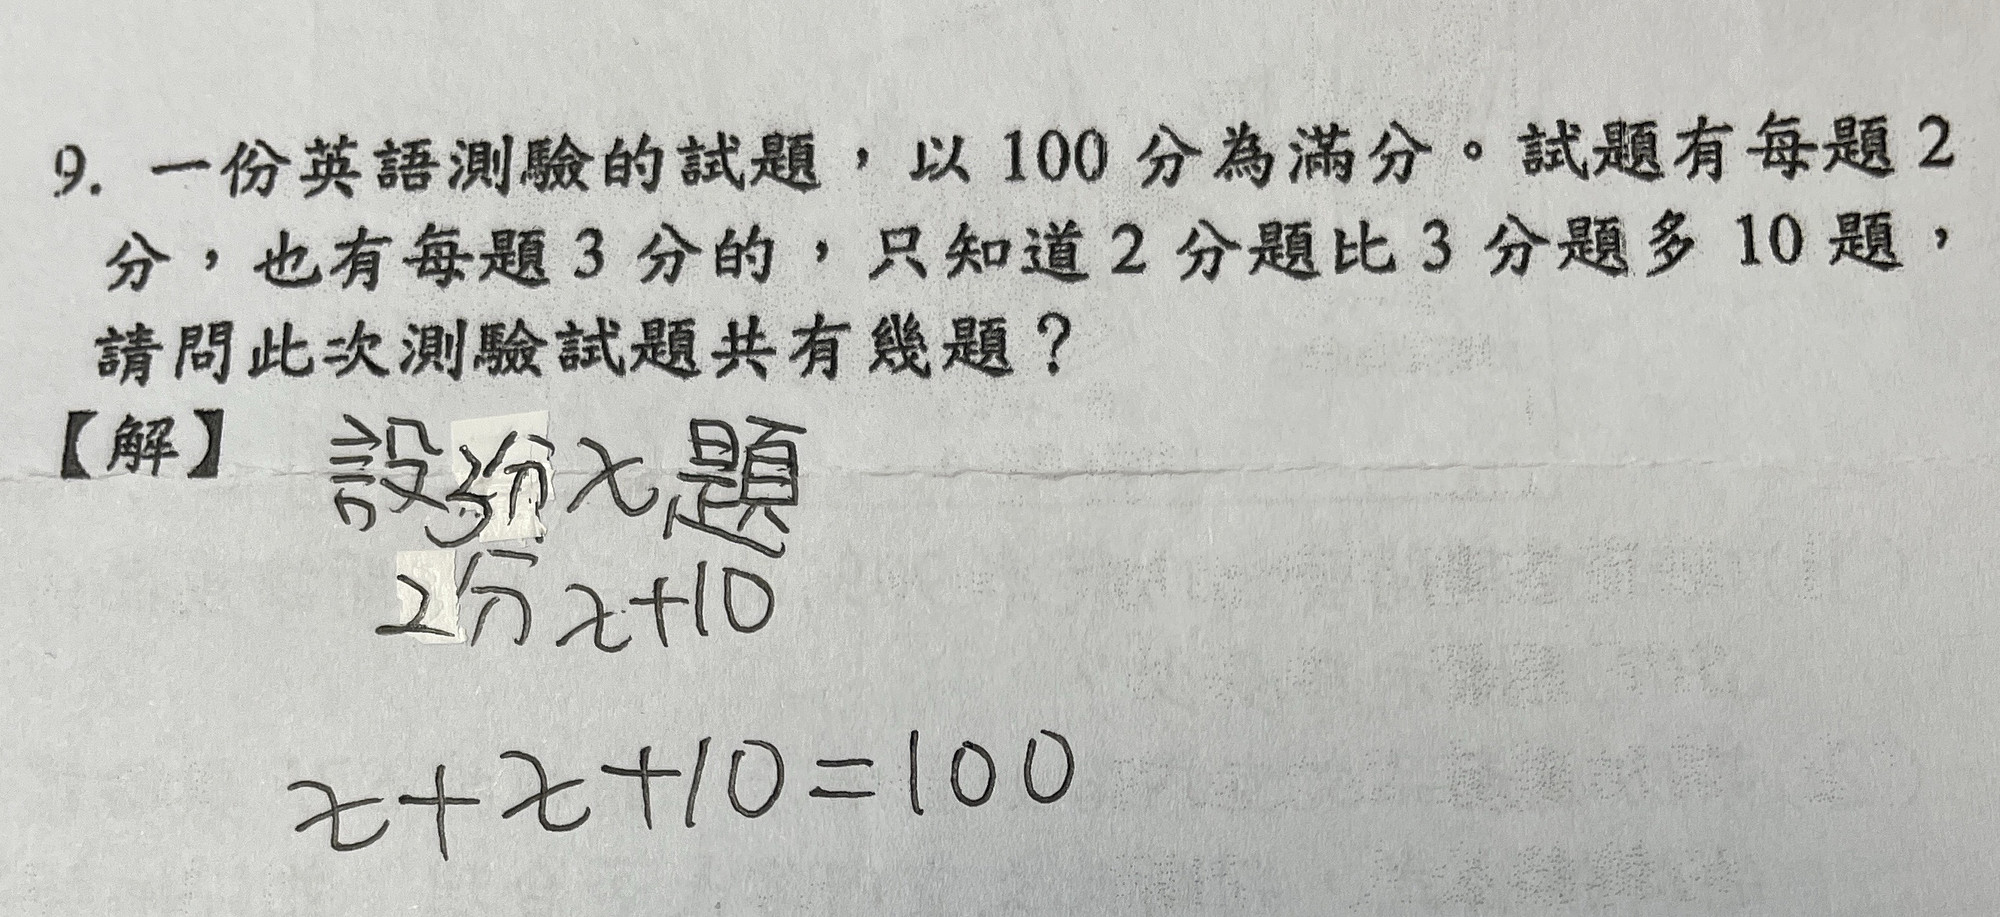 9. 一份英語測驗的試題，以 100 分為滿分。試題有每題 2
分，也有每題 3 分的，只知道 2 分題比 3 分題多 10 題，
請問此次測驗試題共有幾題？
【解】 設3分x題
2分x+10
x+x+10=100